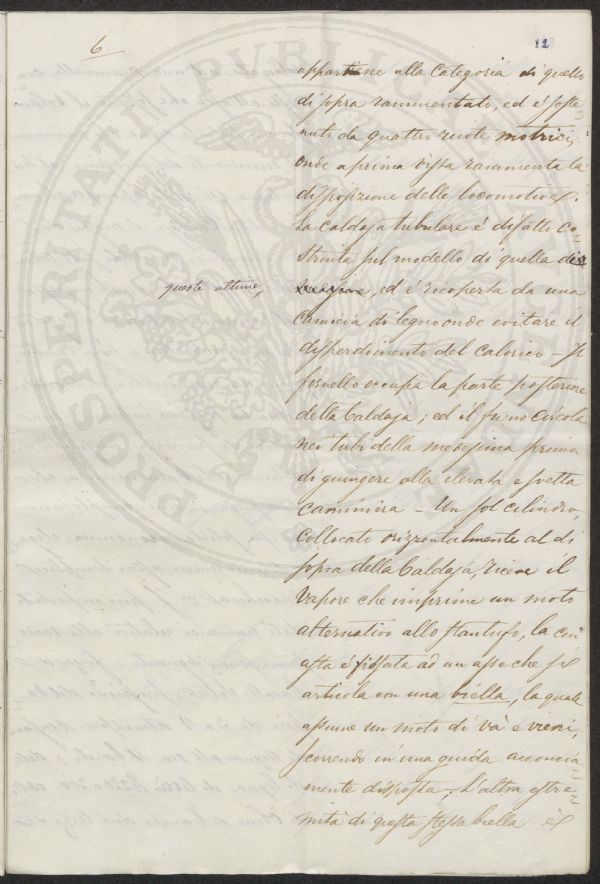 6
12
appartiene alla Categoria di quello
di sopra rammentato, ed è soste-
nuto da quattro ruote motrici,
onde a prima vista rammenta la
disposizione delle locomotive.
La Caldaja tubulare è difatti Co-
struita sul modello di quella di
queste ultime,
ed è ricoperta da una
Camicia di legno onde evitare il
disperdimento del Calorico - Il
fornello occupa la parte posteriore
della Caldaja; ed il fumo circola
nei tubi della medesima prima
di giungere alla elevata e svelta
caminiera - Un sol cilindro,
Collocato orizzontalmente al di
sopra della Caldaja, riceve il
Vapore che imprime un moto
alternativo allo stantufo, la cui
asta è fissata ad un asse che si
articola con una biella, la quale
assume un moto di và e vieni,
scorrendo in una guida acconcia-
mente disposta; L'altra estre-
mità di questa stessa biella è
PROSPERITATI PVBLICAE